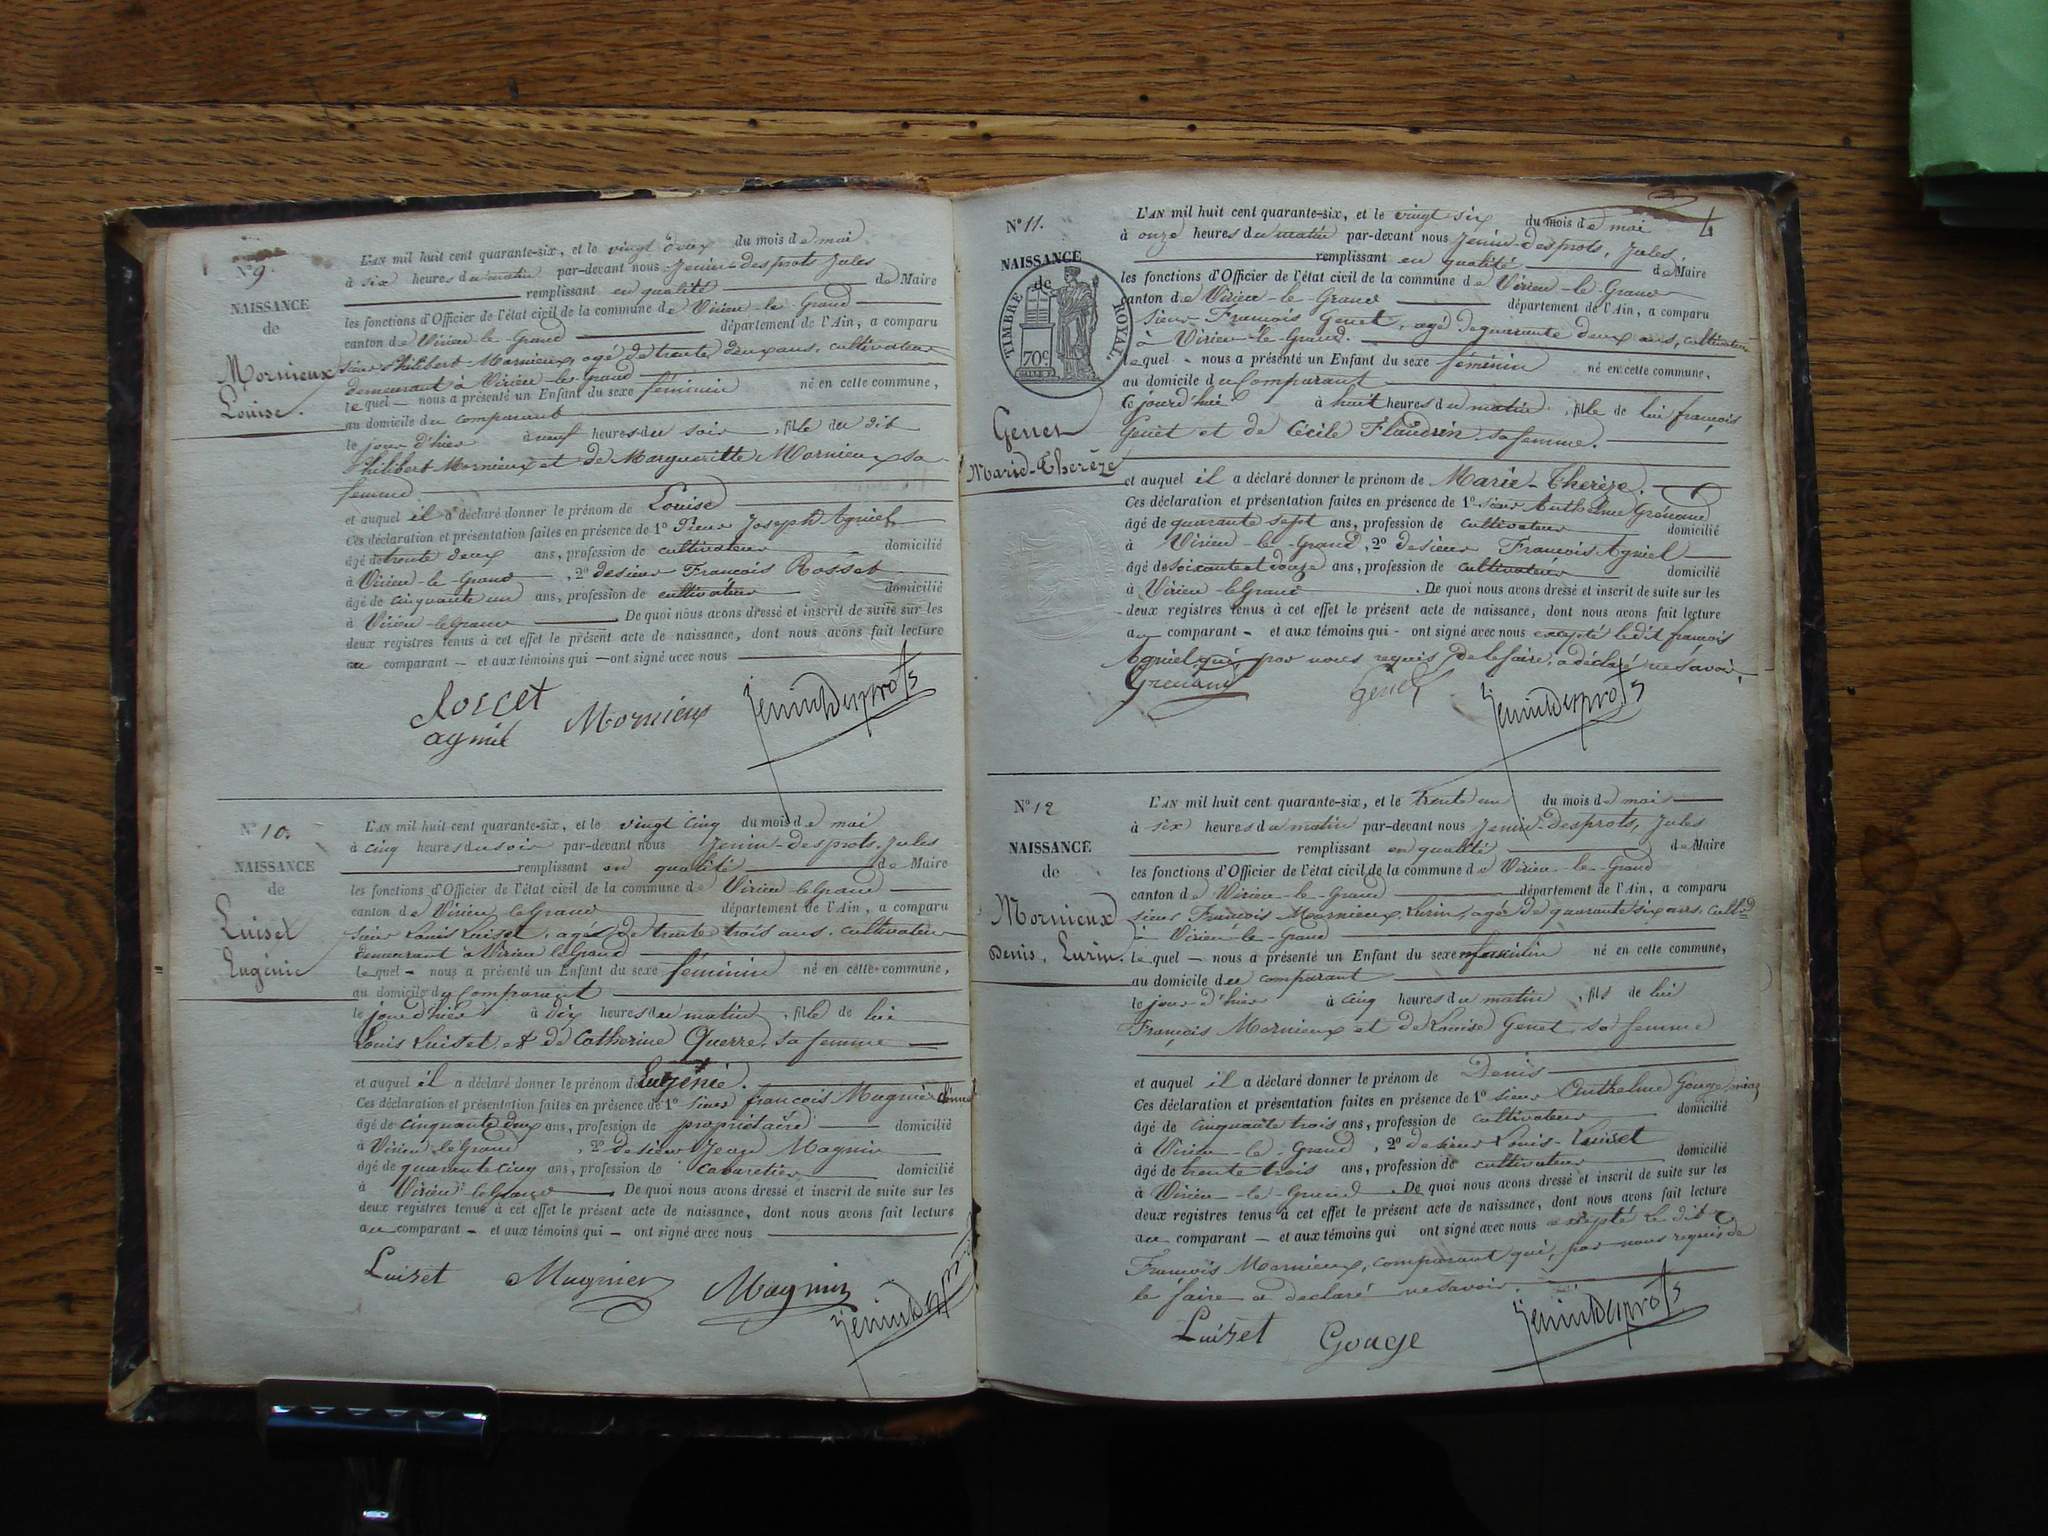 N° 9.
NAISSANCE
de
Mornieux
Louise.
L'AN mil huit cent quarante-six, et le vingt deux du mois de mai
à six heures du matin par-devant nous Jenin-desprots Jules
remplissant en qualité de Maire
les fonctions d'Officier de l'état civil de la commune de Virieu-le-Grand
canton de Virieu-le-Grand département de l'Ain, a comparu
sieur Philibert Mornieux, agé de trente deux ans, cultivateur
demeurant à Virieu le grand
lequel nous a présenté un Enfant du sexe féminin né en cette commune,
au domicile du comparant
le jour d'hier à neuf heures du soir, fille du dit
Philibert Mornieux et de Margueritte Mornieux sa
femme
et auquel il a déclaré donner le prénom de Louise
Ces déclaration et présentation faites en présence de 1° sieur Joseph Agniel
âgé de trente deux ans, profession de cultivateur domicilié
à Virieu-le-Grand, 2° de sieur Francois Rosset
âgé de cinquante un ans, profession de cultivateur domicilié
à Virieu-le Grand. De quoi nous avons dressé et inscrit de suite sur les
deux registres tenus à cet effet le présent acte de naissance, dont nous avons fait lecture
au comparant et aux témoins qui ont signé avec nous
Agniel Mornieux Jenindesprots
N° 10.
NAISSANCE
de
Luiset
Eugénie
L'AN mil huit cent quarante-six, et le vingt cinq du mois de mai
à cinq heures du soir par-devant nous Jenin-desprots, Jules
remplissant en qualité de Maire
les fonctions d'Officier de l'état civil de la commune de Virieu le Grand
canton de Virieu le Grand département de l'Ain, a comparu
sieur Louis Luiset, agé de trente trois ans, cultivateur
demeurant à Virieu le Grand
lequel nous a présenté un Enfant du sexe féminin né en cette commune,
au domicile du Comparant
le jour d'hier à dix heures du matin, fille de lui
Louis Luiset, et de Catherine Querre, sa femme
et auquel il a déclaré donner le prénom de Eugénie.
Ces déclaration et présentation faites en présence de 1° sieur françois Mugnier
âgé de cinquante deux ans, profession de propriétaire domicilié
à Virieu le Grand, 2° de sieur Magnin
âgé de quarante cinq ans, profession de cabaretier domicilié
à Virieu le Grand. De quoi nous avons dressé et inscrit de suite sur les
deux registres tenus à cet effet le présent acte de naissance, dont nous avons fait lecture
au comparant et aux témoins qui ont signé avec nous
Luiset Mugnier Magnin Jenindesprots
4
N° 11.
NAISSANCE
de
TIMBRE ROYAL
70c
Genet
Marie-Therèze
L'AN mil huit cent quarante-six, et le vingt six du mois de mai
à onze heures du matin par-devant nous Jenin-desprots, Jules
remplissant en qualité de Maire
les fonctions d'Officier de l'état civil de la commune de Virieu-le-Grand
canton de Virieu-le-Grand département de l'Ain, a comparu
sieur François Genet, agé de quarante deux ans, cultivateur
à Virieu-le-Grand.
lequel nous a présenté un Enfant du sexe féminin né en cette commune,
au domicile du Comparant
Ce jourd'hui à huit heures du matin, fille de lui françois
Genet et de Cécile Flandrin sa femme.
et auquel il a déclaré donner le prénom de Marie-Therèze.
Ces déclaration et présentation faites en présence de 1° sieur Anthelme Grénoud
âgé de quarante sept ans, profession de cultivateur domicilié
à Virieu-le-Grand, 2° de sieur François Agniel
âgé de soixante et douze ans, profession de cultivateur domicilié
à Virieu-le Grand. De quoi nous avons dressé et inscrit de suite sur les
deux registres tenus à cet effet le présent acte de naissance, dont nous avons fait lecture
au comparant et aux témoins qui ont signé avec nous excepté ledit françois
Agniel qui par nous requis de le faire, a déclaré ne savoir.
Genet Jenindesprots
N° 12
NAISSANCE
de
Mornieux
Denis. Lurin.
L'AN mil huit cent quarante-six, et le trente un du mois de mai
à six heures du matin par-devant nous Jenin-desprots, Jules
remplissant en qualité de Maire
les fonctions d'Officier de l'état civil de la commune de Virieu-le-Grand
canton de Virieu-le-Grand département de l'Ain, a comparu
sieur François Mornieux Lurin, agé de quarante six ans,
à Virieu-le-Grand
lequel nous a présenté un Enfant du sexe masculin né en cette commune,
au domicile du comparant
le jour d'hier à cinq heures du matin, fils de lui
François Mornieux et de Louise Genet sa femme
et auquel il a déclaré donner le prénom de Denis
Ces déclaration et présentation faites en présence de 1° sieur Anthelme Gouge
âgé de cinquante trois ans, profession de cultivateur domicilié
à Virieu-le-Grand, 2° de sieur Louis-Luiset
âgé de trente trois ans, profession de cultivateur domicilié
à Virieu-le-Grand. De quoi nous avons dressé et inscrit de suite sur les
deux registres tenus à cet effet le présent acte de naissance, dont nous avons fait lecture
au comparant et aux témoins qui ont signé avec nous excepté le dit
François Mornieux, comparant qui, par nous requis de
le faire a déclaré ne savoir.
Luiset Gouge Jenindesprots